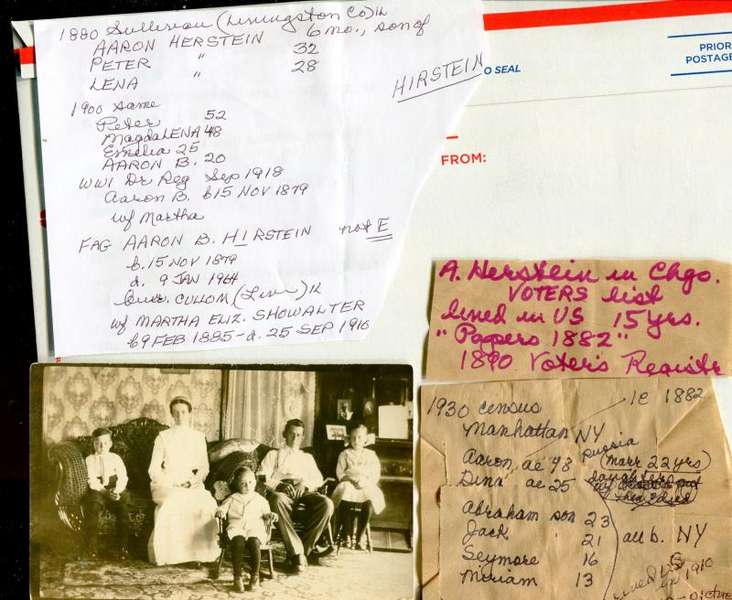 1880 Sullivan (Livingston Co) IL
AARON HERSTEIN 6 mo., son of
PETER " 32
LENA " 28
HIRSTEIN
1900 Same
Peter 52
MagdaLENA 48
Emelia 25
AARON B. 20
WW1 Dr Reg Sep 1918
Aaron B. b15 NOV 1879
w/ Martha
FAG AARON B. HIRSTEIN not E
b. 15 NOV 1879
d. 9 JAN 1964
bur. CULLOM (Liv) IL
w/ MARTHA ELIZ. SHOWALTER
b9 FEB 1885-d. 25 SEP 1910
O SEAL
PRIOR
POSTAGE
FROM:
A. Herstein in Chgo.
VOTERS list
lived in US 15 yrs.
"Papers 1882"
1890 Voter's Registr
1930 census
ie 1882
Manhattan NY
Aaron, ae 48 Russia (marr 22 yrs)
Dina ae 25 daughter
Abraham son 23
Jack 21 all b. NY
Seymore 16
Miriam 13
1910